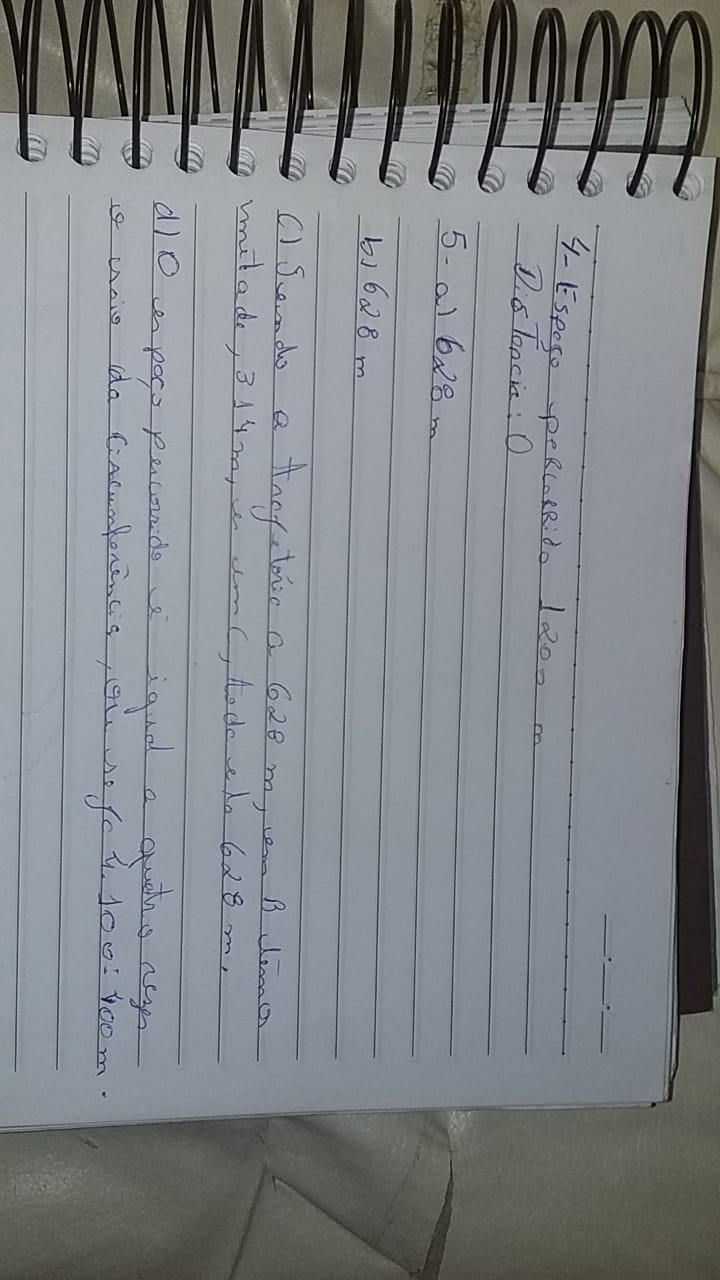 4- Espaço percorrido 1200 m
Distancia: 0
5- a) 628 m
b) 628 m
c) Sendo a trajetória a 628 m, em B têmos
metade, 314 m, e em C, toda ela 628 m.
d) O espaço percorrido é igual a quatro vezes
o raio da circunferência, ou seja 4.100=400m.